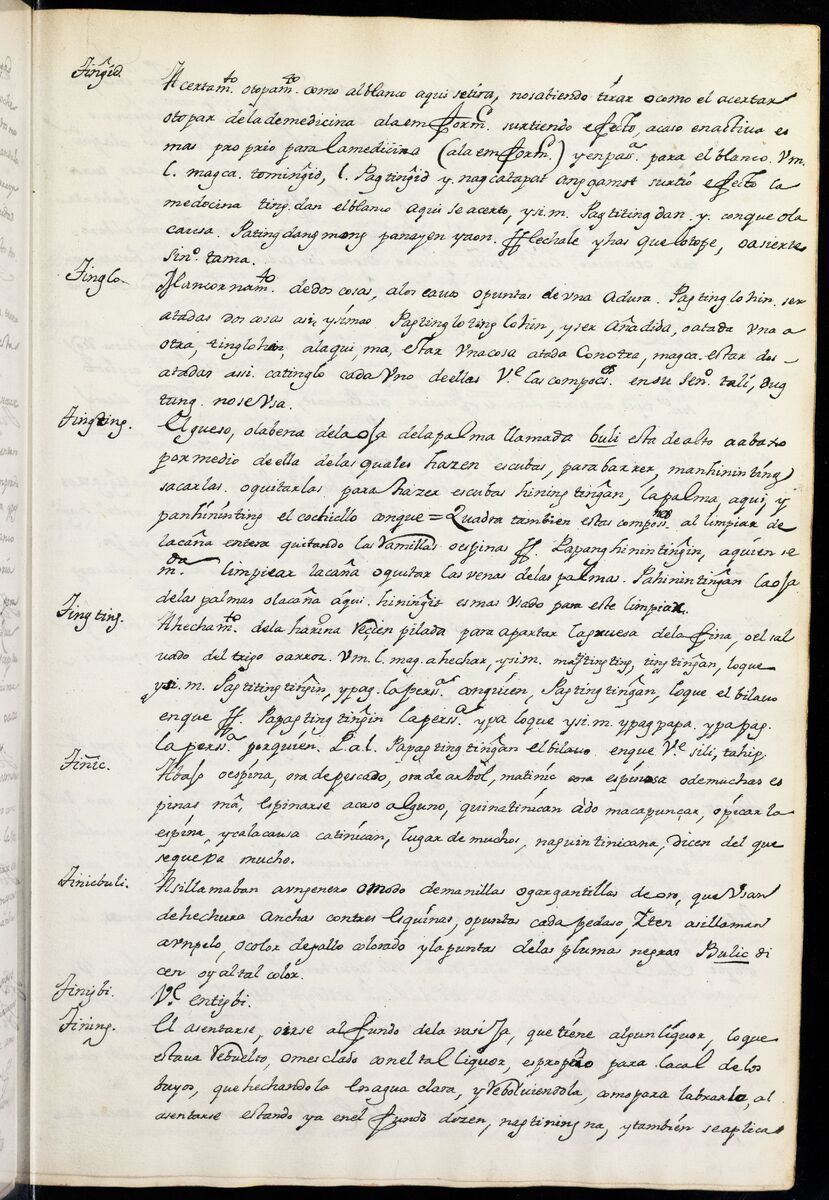 Tingid.
Acertam.to o topam.to como al blanco aqui se tira, no sabiendo tirar o como el acertar
o topar de la de medicina a la emferm. surtiendo efecto, acaso en activa es
mas proprio para la medicina (a la emferm.) y en pas.a para el blanco. Vm.
l. magca. tomingid, l. Pagtingid y nagcatapat ang gamot surtio effecto la
medecina ting.dan el blanco aqui se acerto, y si.m. Pagtitingdan. y. con que o la
causa. Patingdang mong panayen yaon. ff. flechale y has que lo tope, o asierte
Sin.o tama.
Tinglo.
Mancornam.to de dos cosas, a los cavos o puntas de una Adura. Pagtinglohin. ser
atadas dos cosas asi, y simas Pagtinglotinglohin, y ser Añadida, o atada Vna a
otra, tinglohan, a la qui, ma, estar Vna cosa atada con otra, magca. estar dos
atadas assi. catinglo cada Vno de ellas V.e las compoc.s en su Sen.o tali, dug
tung. no se Vsa.
Tingting.
El gueso, o la bena de la oja de la palma llamada buli esta de alto a abaxo
por medio de ella de las quales hazen escubas, para barrer, manhinintíng
sacarlas. o quitarlas para hazer escubas hiningtingan, la palma, aqui, y
panhininting el cochiello con que = Quadra tambien estas compos.nes al limpiar de
la caña entera quitando las Vamillas o espinas ff. Papanghinintingin, a quien se
m.da limpiear la caña o quitar las venas de las palmas. Pahinintingan la oja
de las palmas o la caña aqui. hiningit es mas Vsado para este limpiar.
Tingting.
Ahecham.to de la harina recien pilada para apartar la gruesa de la fina, o el sal
uado del trigo o arroz. Vm. l. mag. ahechar, y si.m. magtingting, tingtingan, lo que
y si.m. Pagtitingtingin, y pag. la pers.a con quien, Pagtingtingan, lo que el bilauo
en que ff. Papagtingtingin la pers.a y pa lo que y si.m. ypagpapa. ypapag.
la pers.a por quien. L.a.l. Papagtingtingan el bilauo en que V.e sili, tahip.
Tinic.
Abajo o espina, ora de pescado, ora de arbol, matinic cosa espinosa o de muchas es
pinas ma, espinarse acaso alguno, quinatinican a do macapunçar, o picar la
espina, y ca la causa catinican, lugar de muchos, naguintinicana, dicen del que
se quexa mucho.
Tinicbuli.
Asi llamaban a un genero o modo de manillas o gargantillas de oro, que Vsan
de hechura anchas con tres esquinas, o puntas cada pedaso, Iten asi llaman
a un pelo, o color de gallo colorado y la puntas de las pluma negras Bulic di
cen oy al tal color.
Tinigbi.
V.e entigbi.
Tining.
El asentarse, o irse al fundo de la vasija, que tiene algun liquor, lo que
estava rebuelto, o mesclado con el tal liquor, es proprio para la cal de los
buyos, que hechandola en agua clara, y rebolviendola, como para labrarla, al
asentarse estando ya en el fundo dizen, nagtining na, y tambien se aplica